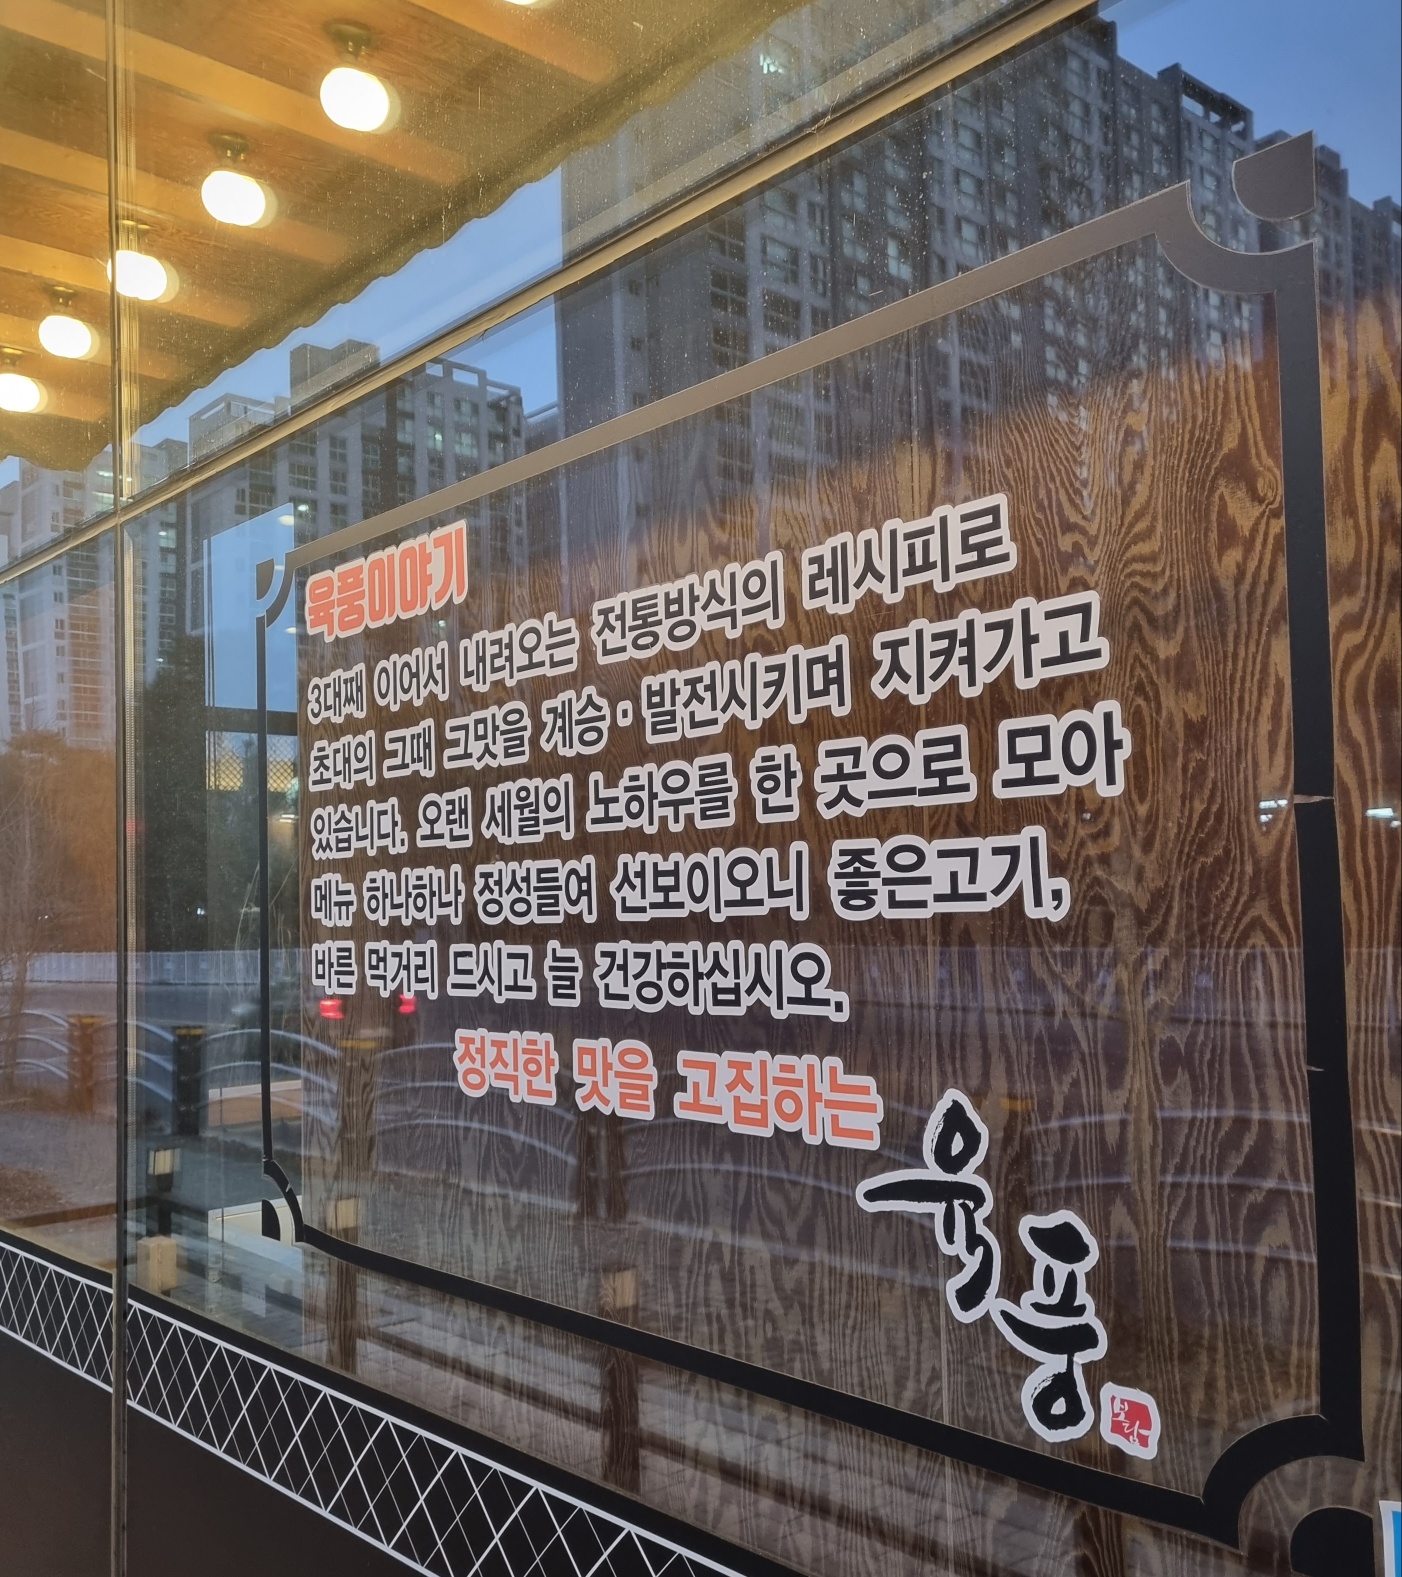 육풍이야기
3대째 이어서 내려오는 전통방식의 레시피로
초대의 그때 그맛을 계승·발전시키며 지켜가고
있습니다. 오랜 세월의 노하우를 한 곳으로 모아
메뉴 하나하나 정성들여 선보이오니 좋은고기,
바른 먹거리 드시고 늘 건강하십시오.
정직한 맛을 고집하는
육풍